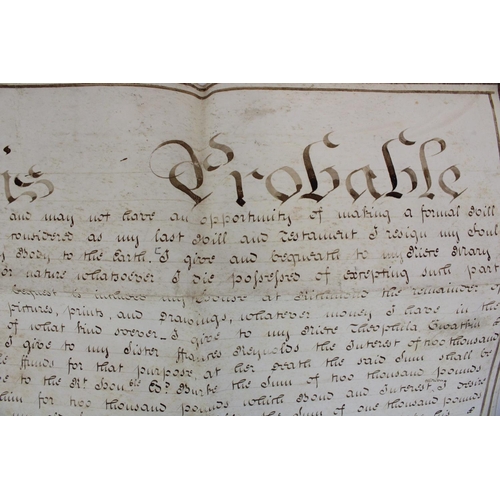 is Probable
and may not have an opportunity of making a formal Will
considered as my last Will and Testament I resign my Soul
Body to the Earth. I give and bequeath to my Niece Mary
or nature whatsoever I die possessed of excepting such part
Bequest is included my house at Richmond the remainder of
pictures, prints, and Drawings, whatever money I have in the
of what kind soever I give to my Niece Theophila Gwatkin
I give to my Sister Frances Reynolds the Interest of two thousand
Funds for that purpose at her death the said Sum shall be
to the Rt. Honble. Ed. Burke the Sum of two thousand pounds
him for two thousand pounds which Bond and Interest I desire
two thousand pounds the Sum of one thousand pounds